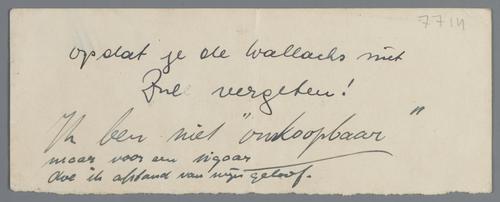 7714
opdat je de Wallachs niet
zult vergeten!
Ik ben niet "omkoopbaar"
maar voor een sigaar
doe ik afstand van mijn geloof.